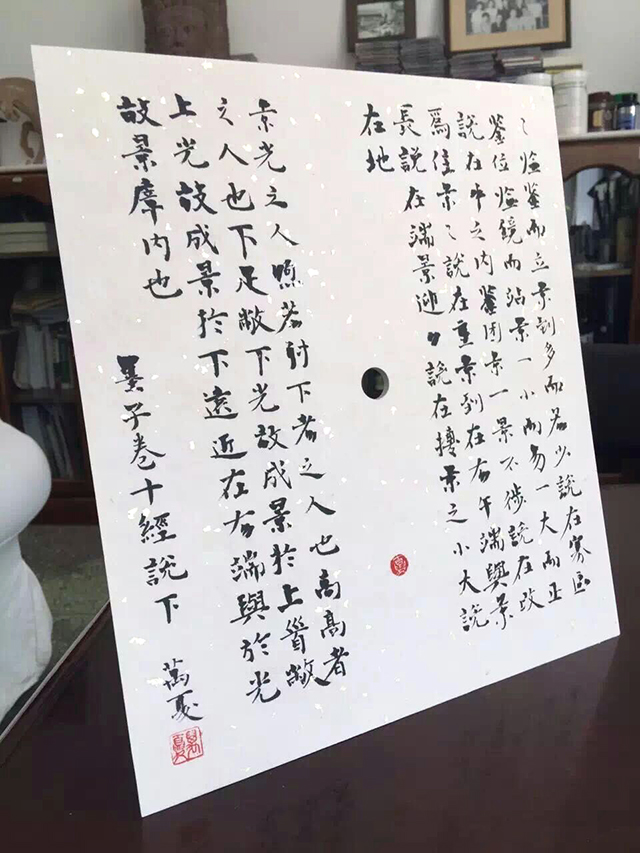 二臨鑒而立景到多而若少說在寡區
鑒位臨鏡而站景一小而易一大而正
說在中之內鑒団景一景不徙說在改
爲住景二說在重景到在有午端與景
長說在端景迎日說在摶景之小大說
在地
景光之人煦若射下者之人也高高者
之人也下足敝下光故成景於上首敝
上光故成景於下遠近在有端與於光
故景庫內也
墨子卷十經說下
萬戛